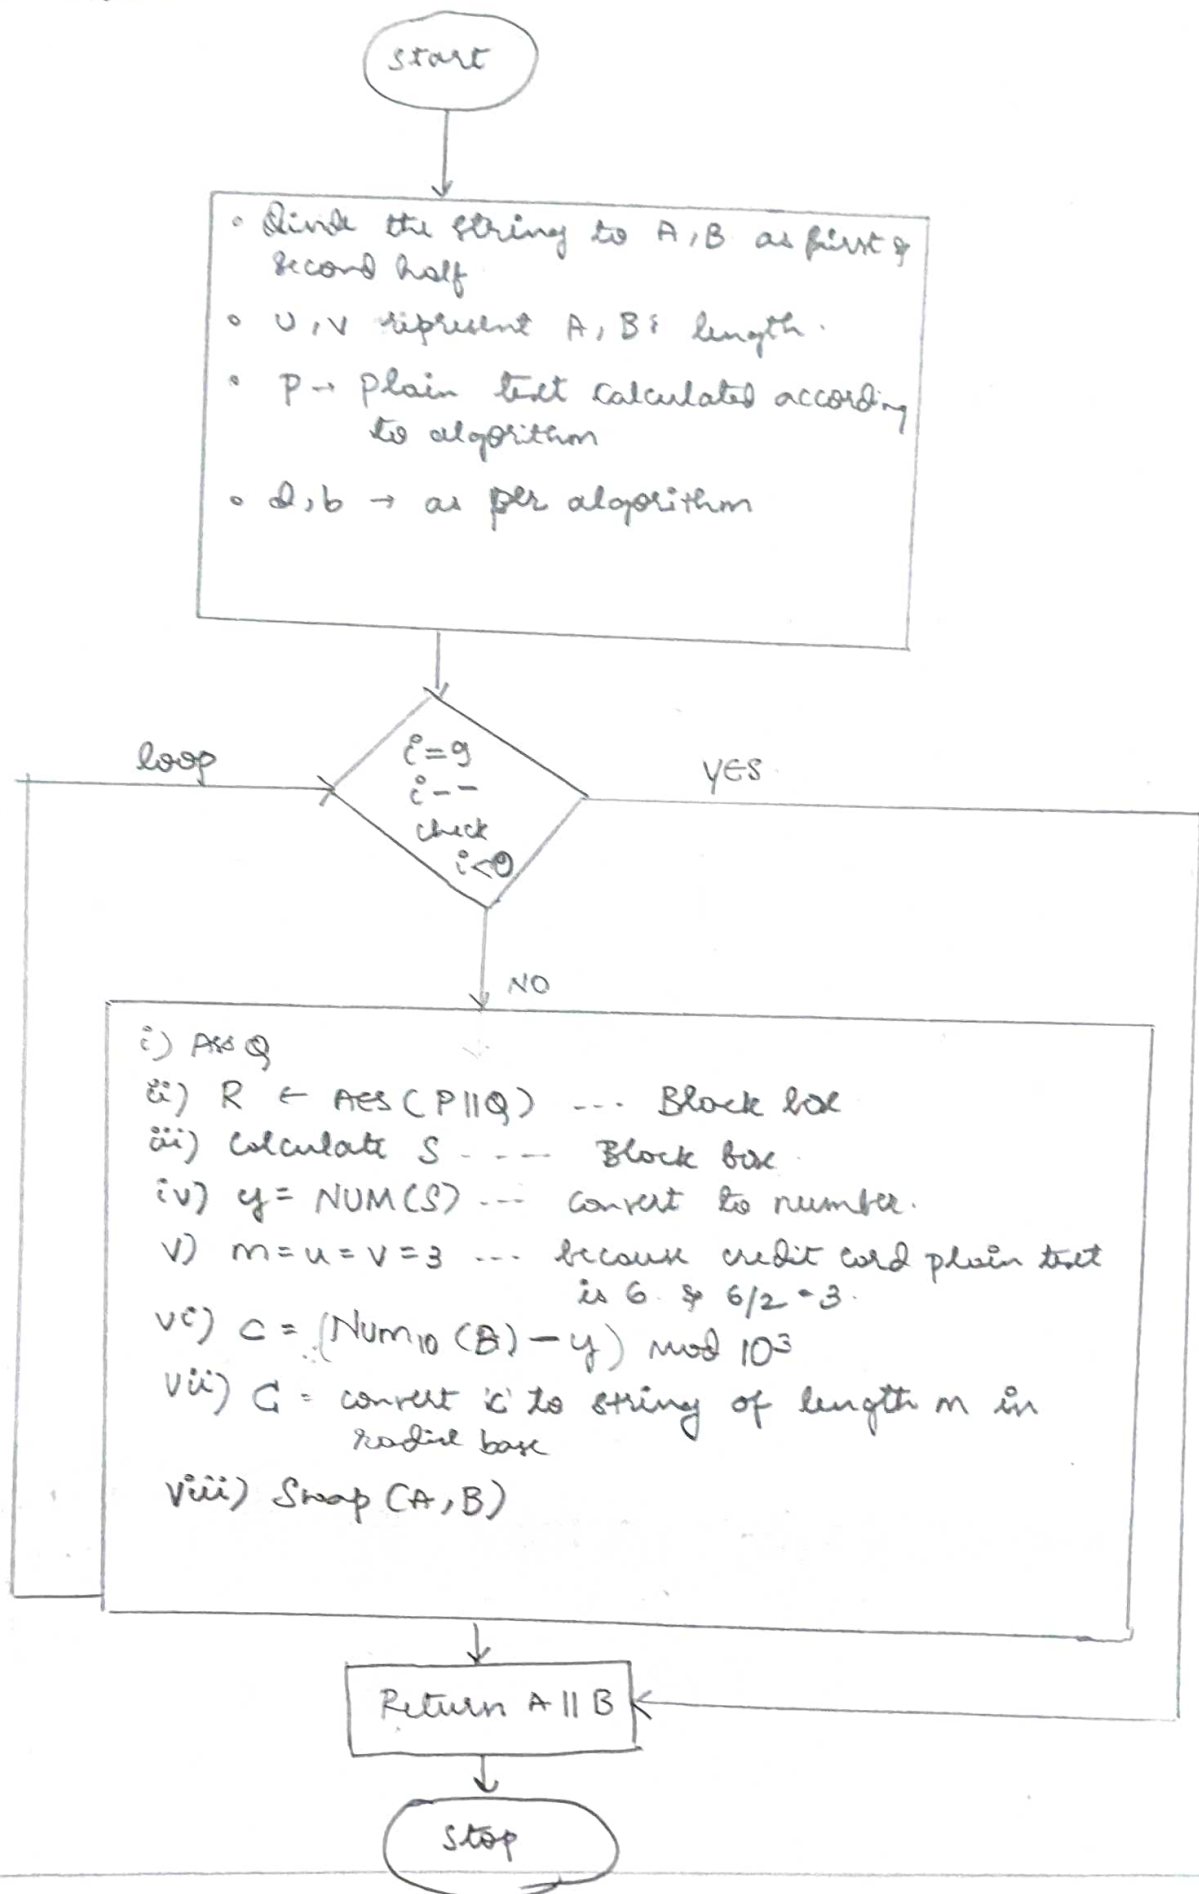 start
• Divide the string to A, B as first &
second half
• U, V represent A, B's length.
• P → Plain text calculated according
to algorithm
• d, b → as per algorithm
loop
i=9
i--
check
i<0
YES
NO
i) Ass Q
ii) R ← AES (P||Q) ... Block box
iii) Calculate S ---- Block box
iv) y = NUM(S) --- convert to number.
v) m = u = v = 3 --- because credit card plain text
is 6. & 6/2 = 3.
vi) c = (Num10 (B) - y) mod 10³
vii) C = convert 'c' to string of length m in
radix base
viii) Swap (A, B)
Return A || B
Stop